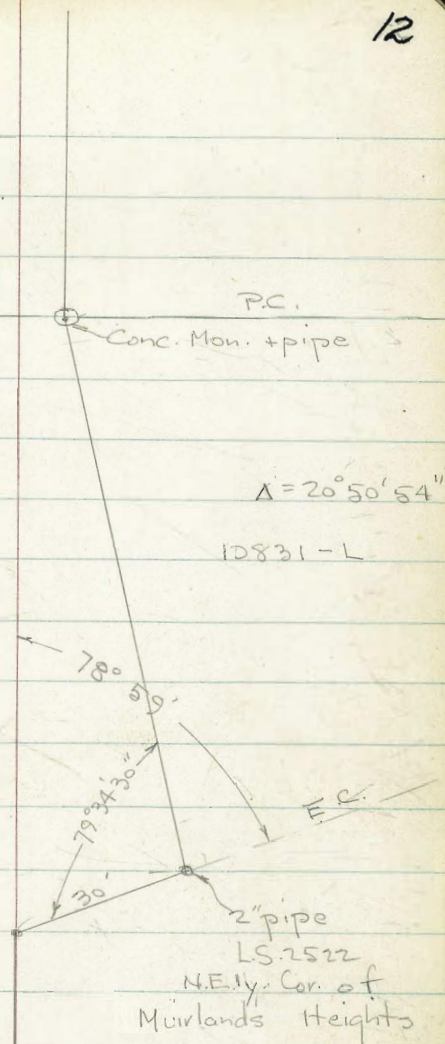 12
P.C.
Conc. Mon. + pipe
Δ = 20°50'54"
10831 - L
78° 59'
79°34'30"
E.C.
30'
2" pipe
L.S. 2522
N.E'ly. Cor. of
Muirlands Heights